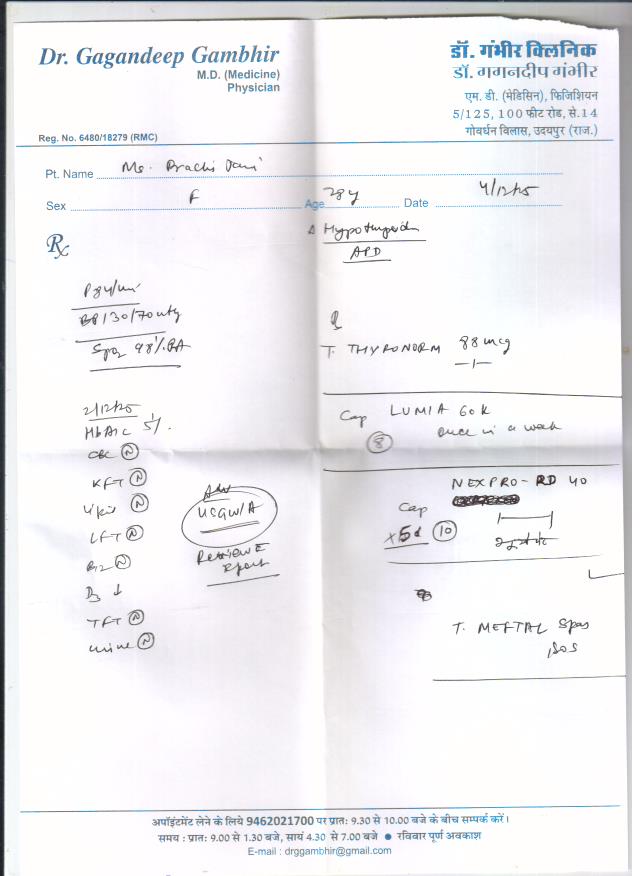 Dr. Gagandeep Gambhir
M.D. (Medicine)
Physician
Reg. No. 6480/18279 (RMC)
डॉ. गंभीर क्लिनिक
डॉ. गगनदीप गंभीर
एम. डी. (मेडिसिन), फिजिशियन
5/125, 100 फीट रोड, से.14
गोवर्धन विलास, उदयपुर (राज.)
Pt. Name Ms. Prachi
Sex F Age 28y Date 4/12/25
Rx
Δ Hypothyroidism
APD
P 84/min
BP 130/70
SpO2 98% RA
2/12/25
HbA1C 5%
CBC N
KFT N
Lipid N
LFT N
B12 N
D3 ↓
TFT N
Urine N
Adv
USG W/A
Review E
Report
T. THYRONORM 88 mcg
Cap LUMIA 60K
once in a week
8
NEXPRO-RD 40
Cap
x 5d 10
T. MEFTAL Spas
SOS
अपॉइंटमेंट लेने के लिये 9462021700 पर प्रातः 9.30 से 10.00 बजे के बीच सम्पर्क करें।
समय : प्रातः 9.00 से 1.30 बजे, सायं 4.30 से 7.00 बजे ● रविवार पूर्ण अवकाश
E-mail : drggambhir@gmail.com